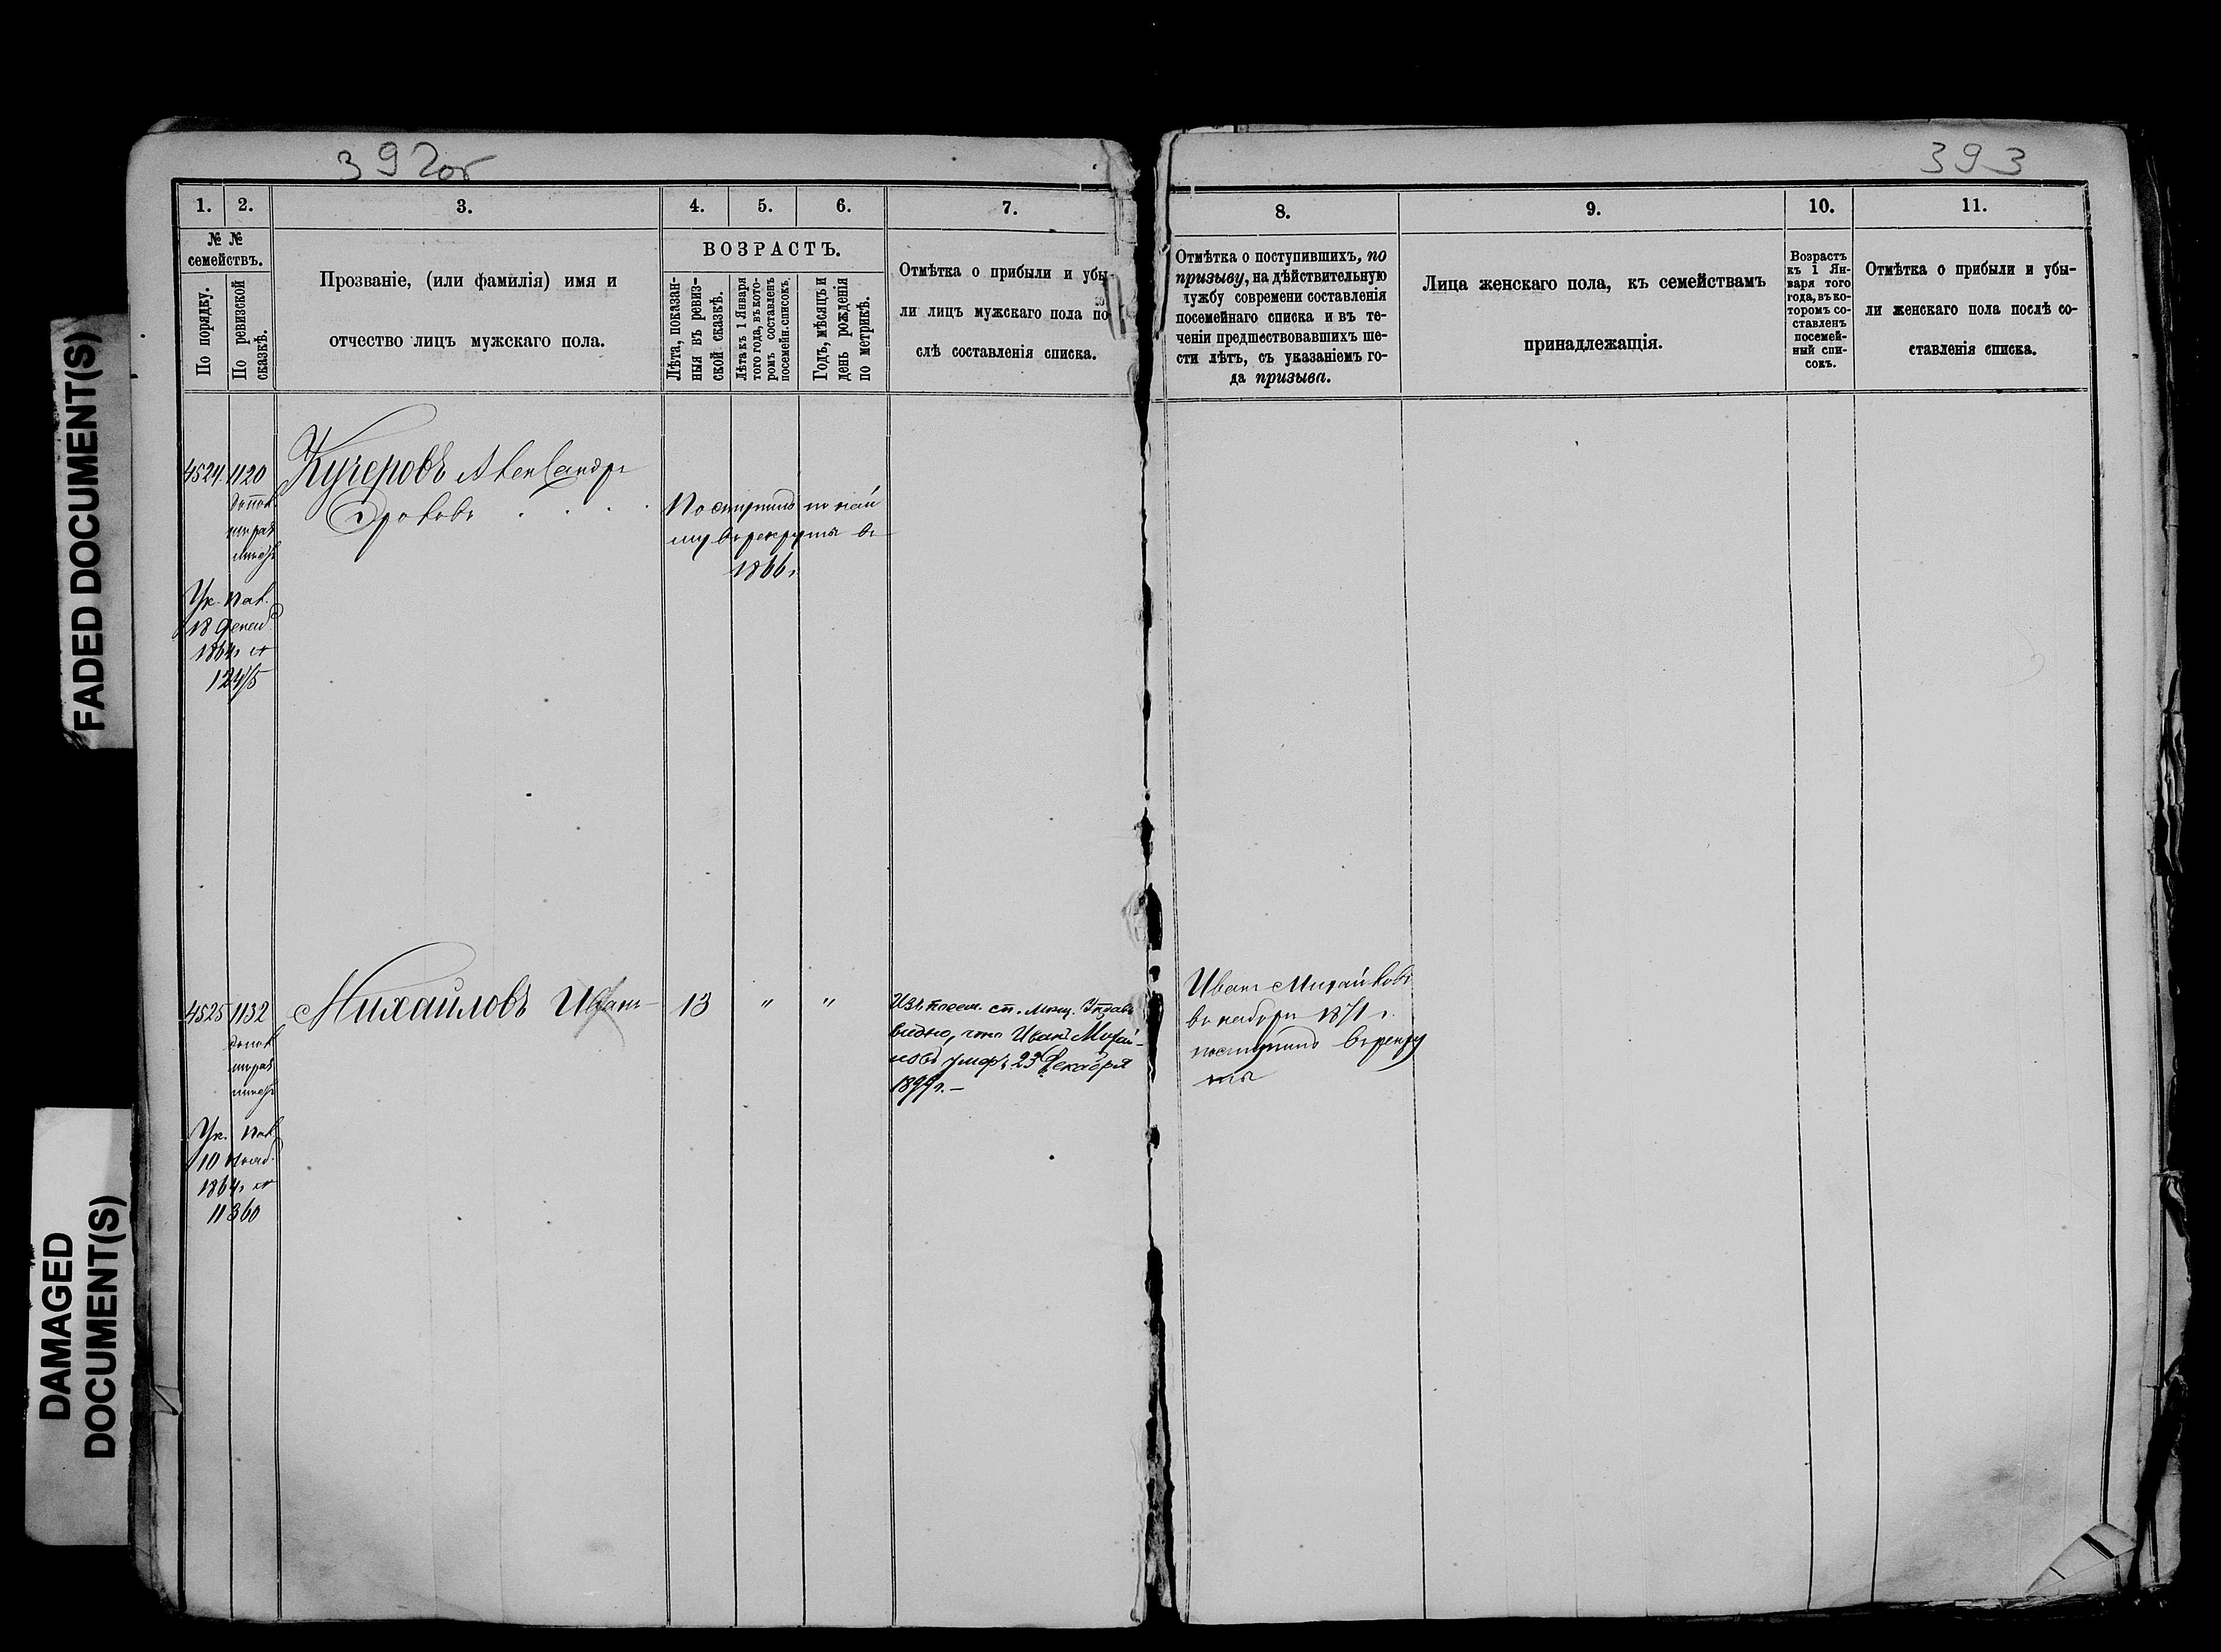 392об
393
1.
2.
3.
4.
5.
6.
7.
8.
9.
10.
11.
№ №
семействъ.
По порядку.
По ревизской
сказкѣ.
Прозваніе, (или фамилія) имя и
отчество лицъ мужскаго пола.
ВОЗРАСТЪ.
Лѣта, показан-
ныя въ ревиз-
ской сказкѣ.
Лѣта къ 1 Января
того года, въ кото-
ромъ составленъ
посемейн. списокъ.
Годъ, мѣсяцъ и
день рожденія
по метрикѣ.
Отмѣтка о прибыли и убы-
ли лицъ мужскаго пола по-
слѣ составленія списка.
Отмѣтка о поступившихъ, по
призыву, на дѣйствительную
лужбу современи составленія
посемейнаго списка и въ те-
ченіи предшествовавшихъ ше-
сти лѣтъ, съ указаніемъ го-
да призыва.
Лица женскаго пола, къ семействамъ
принадлежащія.
Возрастъ
къ 1 Ян-
варя того
года, въ ко-
торомъ со-
ставленъ
посемей-
ный спи-
сокъ.
Отмѣтка о прибыли и убы-
ли женскаго пола послѣ со-
ставленія списка.
4524. 1120
Кучеровъ Александръ
Поступилъ по най
му въ рекруты въ
1866 г.
Ук. Пал.
18 Декаб.
1864 г. №
12415
4525 1132
Михайловъ Иванъ
13 " "
Изъ посем. сп. мѣщ. Управы
видно, что Иванъ Михай-
ловъ умеръ 23 Декабря
1899 г. –
Иванъ Михайловъ
въ наборъ 1871 г.
поступилъ въ рекру
ты
Ук. Пал.
10 Нояб.
1864 г. №
11360
FADED DOCUMENT(S)
DAMAGED
DOCUMENT(S)